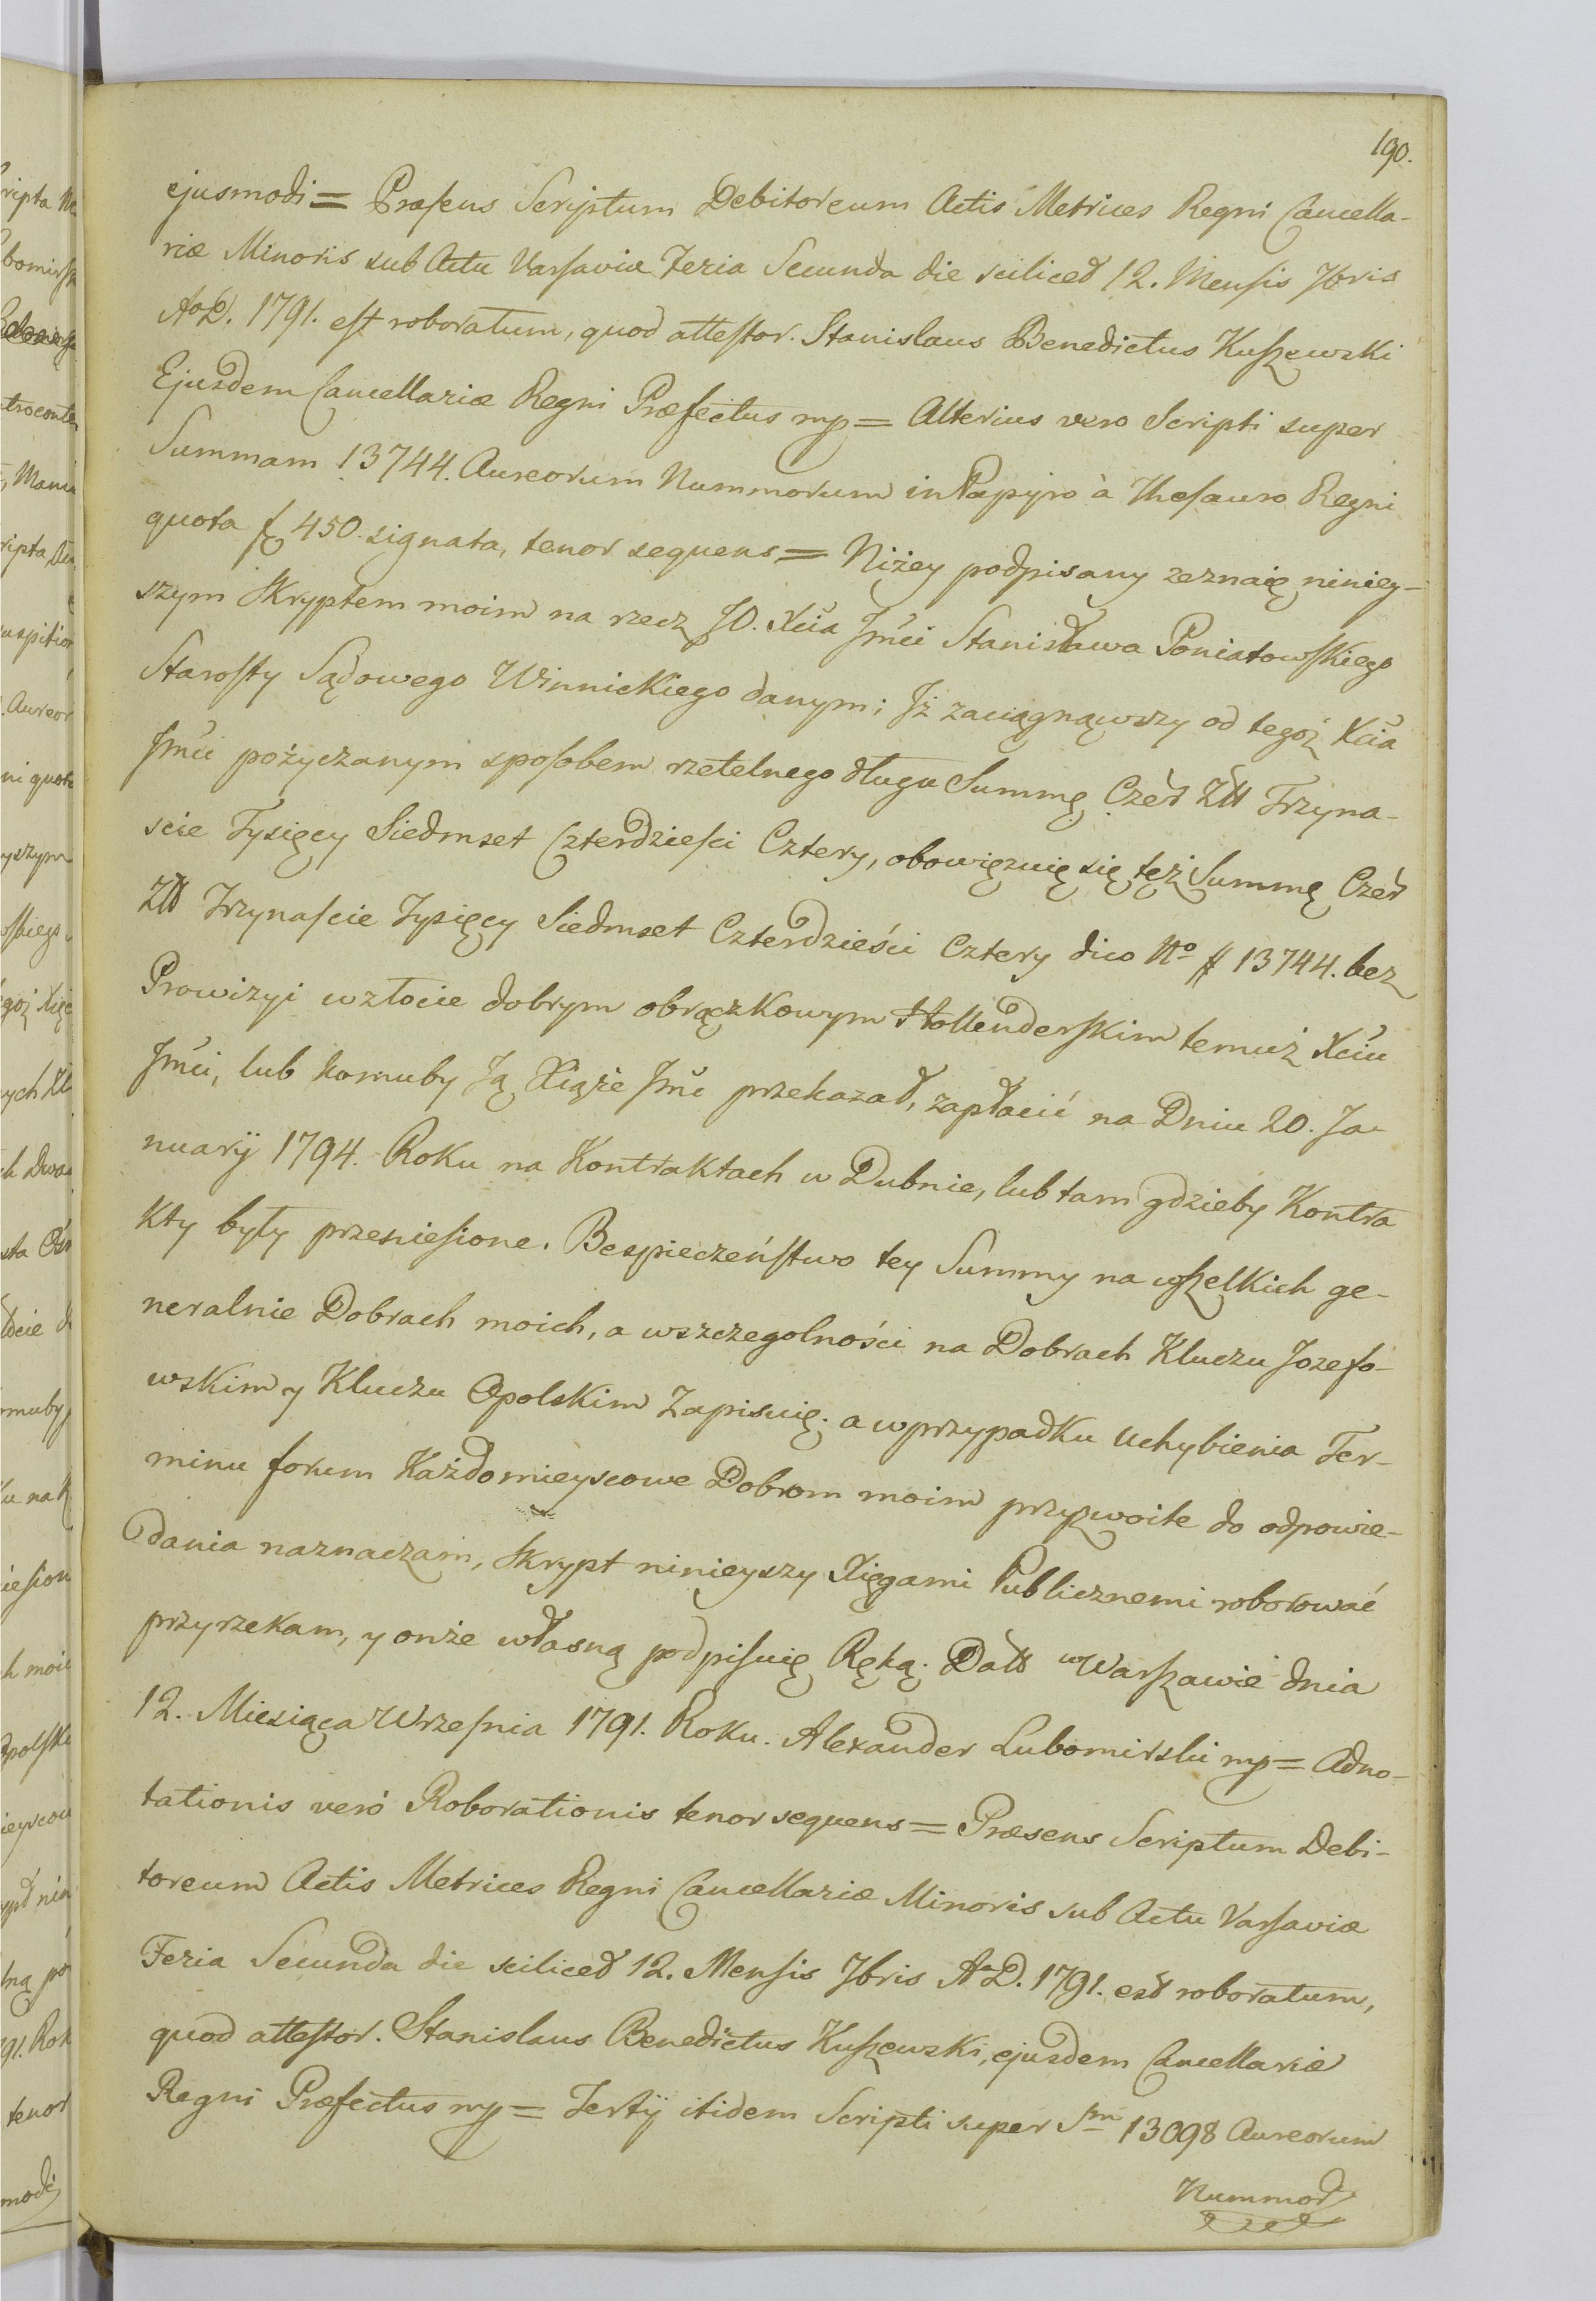 190.
ejusmodi = Præsens Scriptum Debitoreum Actis Metrices Regni Cancella-
riæ Minoris sub Actu Varsaviæ Feria Secunda die scilicet 12. Mensis 7bris
AoD. 1791. est roboratum, quod attestor. Stanislaus Benedictus Kuszewski
Ejusdem Cancellariæ Regni Præfectus mp = Alterius vero Scripti super
Summam 13744. Aureorum Nummorum in Papyro à Thesauro Regni
quota f 450. signata, tenor sequens = Niżey podpisany zeznaię niniey-
szym Skryptem moim na rzecz JO. Xcia Jmci Stanisława Poniatowskiego
Starosty Sądowego Winnickiego danym; Jż zaciągnąwszy od tegoż Xcia
Jmci pożyczanym sposobem rzetelnego długu Summę Czer Złł Trzyna-
scie Tysięcy Siedmset Czterdziesci Cztery, obowięzuię się tęż Summę Czer
Złł Trzynascie Tysięcy Siedmset Czterdzieści Cztery dico No # 13744. bez
Prowizyi wzłocie dobrym obrączkowym Hollenderskim temuż Xciu
Jmci, lub komuby Ją Xiąże Jmc przekazał, zapłacić na Dniu 20. Ja-
nuarij 1794. Roku na Kontraktach w Dubnie, lub tam gdzieby Kontra
kty były przeniesione. Bespieczeństwo tey Summy na wszelkich ge-
neralnie Dobrach moich, a wszczegolności na Dobrach Kluczu Jozefo-
wskim y Kluczu Opolskim Zapisuię; a wprzypadku uchybienia Ter-
minu forum Każdomieyscowe Dobrom moim przyzwoite do odpowie-
dania naznaczam, Skrypt ninieyszy Xięgami Publicznemi roborować
przyrzekam, y onże własną podpisuię Ręką. Datt w Warszawie dnia
12. Miesiąca Wrzesnia 1791. Roku. Alexander Lubomirski mp = Adno-
tationis veró Roborationis tenor sequens = Præsens Scriptum Debi-
toreum Actis Metrices Regni Cancellariæ Minoris sub Actu Varsaviæ
Feria Secunda die scilicet 12. Mensis 7bris AoD. 1791. est roboratum,
quod attestor. Stanislaus Benedictus Kuszewski, ejusdem Cancellariæ
Regni Præfectus mp = Tertij itidem Scripti super Sm 13098 Aureorum
Nummor